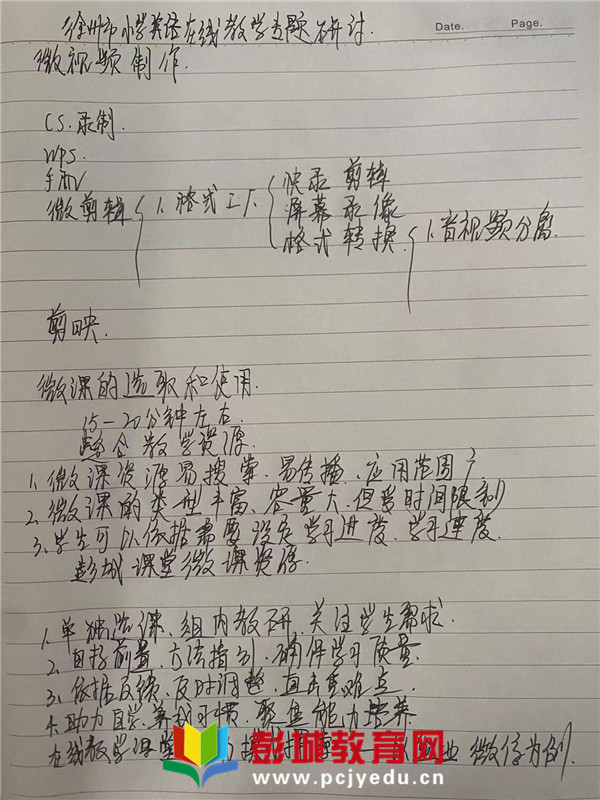 Date.
Page.
徐州市小学英语在线教学专题研讨.
微视频制作.
CS.录制.
WPS.
手机
微剪辑 1.格式工厂 快录剪辑
屏幕录像
格式转换 1.音视频分离.
剪映.
微课的选取和使用.
15-20分钟左右.
整合教学资源.
1.微课资源易搜索、易传播、应用范围广
2.微课的类型丰富、容量大,但暂时间限制
3.学生可以依据需要设定学习进度、学习速度.
彭城课堂微课资源.
1.单独备课、组内教研、关注学生需求.
2.目标前置、方法指引、确保学习质量.
3.依据反馈、及时调整、直击重难点.
4.助力自学、养成习惯、聚焦能力培养
在线教学课堂 微 为例》
彭城教育网
www.pcjyedu.cn